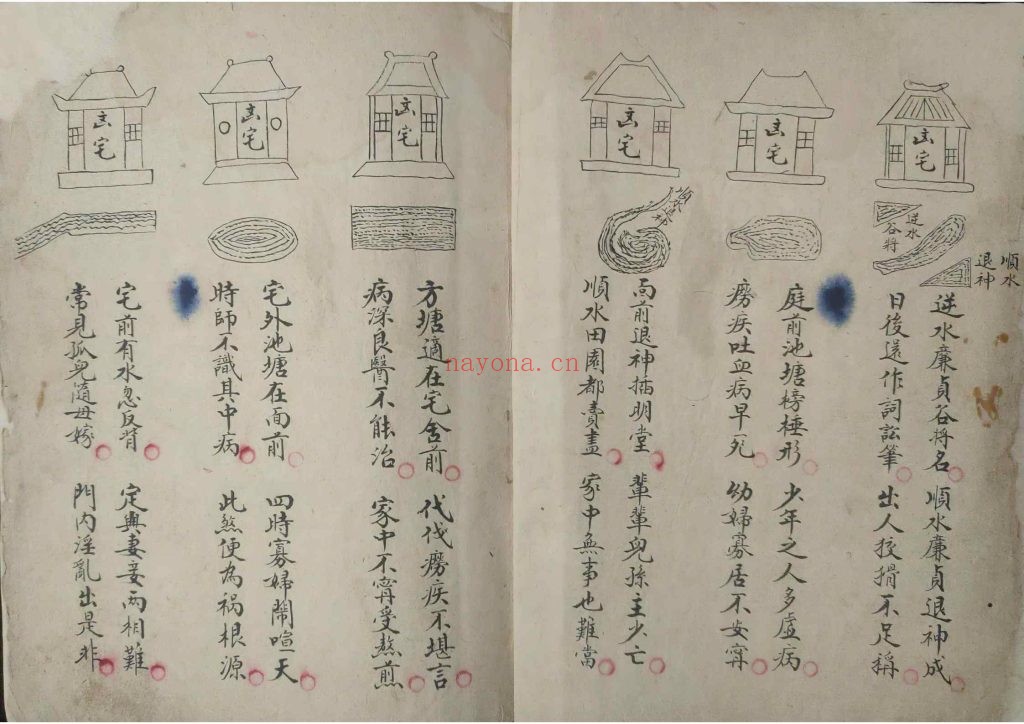 㐫宅
逆水
谷將
順水
退神
逆水廉貞谷將名 順水廉貞退神成
日後還作詞訟筆 出人狡猾不足稱
㐫宅
庭前池塘榜棰形 少年之人多虛病
癆疾吐血病早死 幼婦寡居不安寧
㐫宅
順水
退神
向前退神插明堂 輩輩兒孫主少亡
順水田園都賣盡 家中無事也難當
㐫宅
方塘適在宅舍前 代代癆疾不堪言
病深良醫不能治 家中不寧受熬煎
㐫宅
宅外池塘在面前 四時寡婦鬧喧天
時師不識其中病 此煞便為祸根源
㐫宅
宅前有水忽反背 定與妻妾两相難
常見孤兒隨母嫁 門内淫亂出是非
nayona.cn